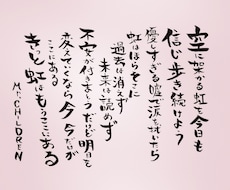 空に架かる虹を今日も
信じ歩き続けよう
優しすぎる嘘で涙を拭いたら
虹はほらそこに
過去は消えず
未来は読めず
不安が付きまとう だけど明日を
変えていくなら今 今だけが
ここにある
きっと虹はもうここにある
Mr.CHILDREN